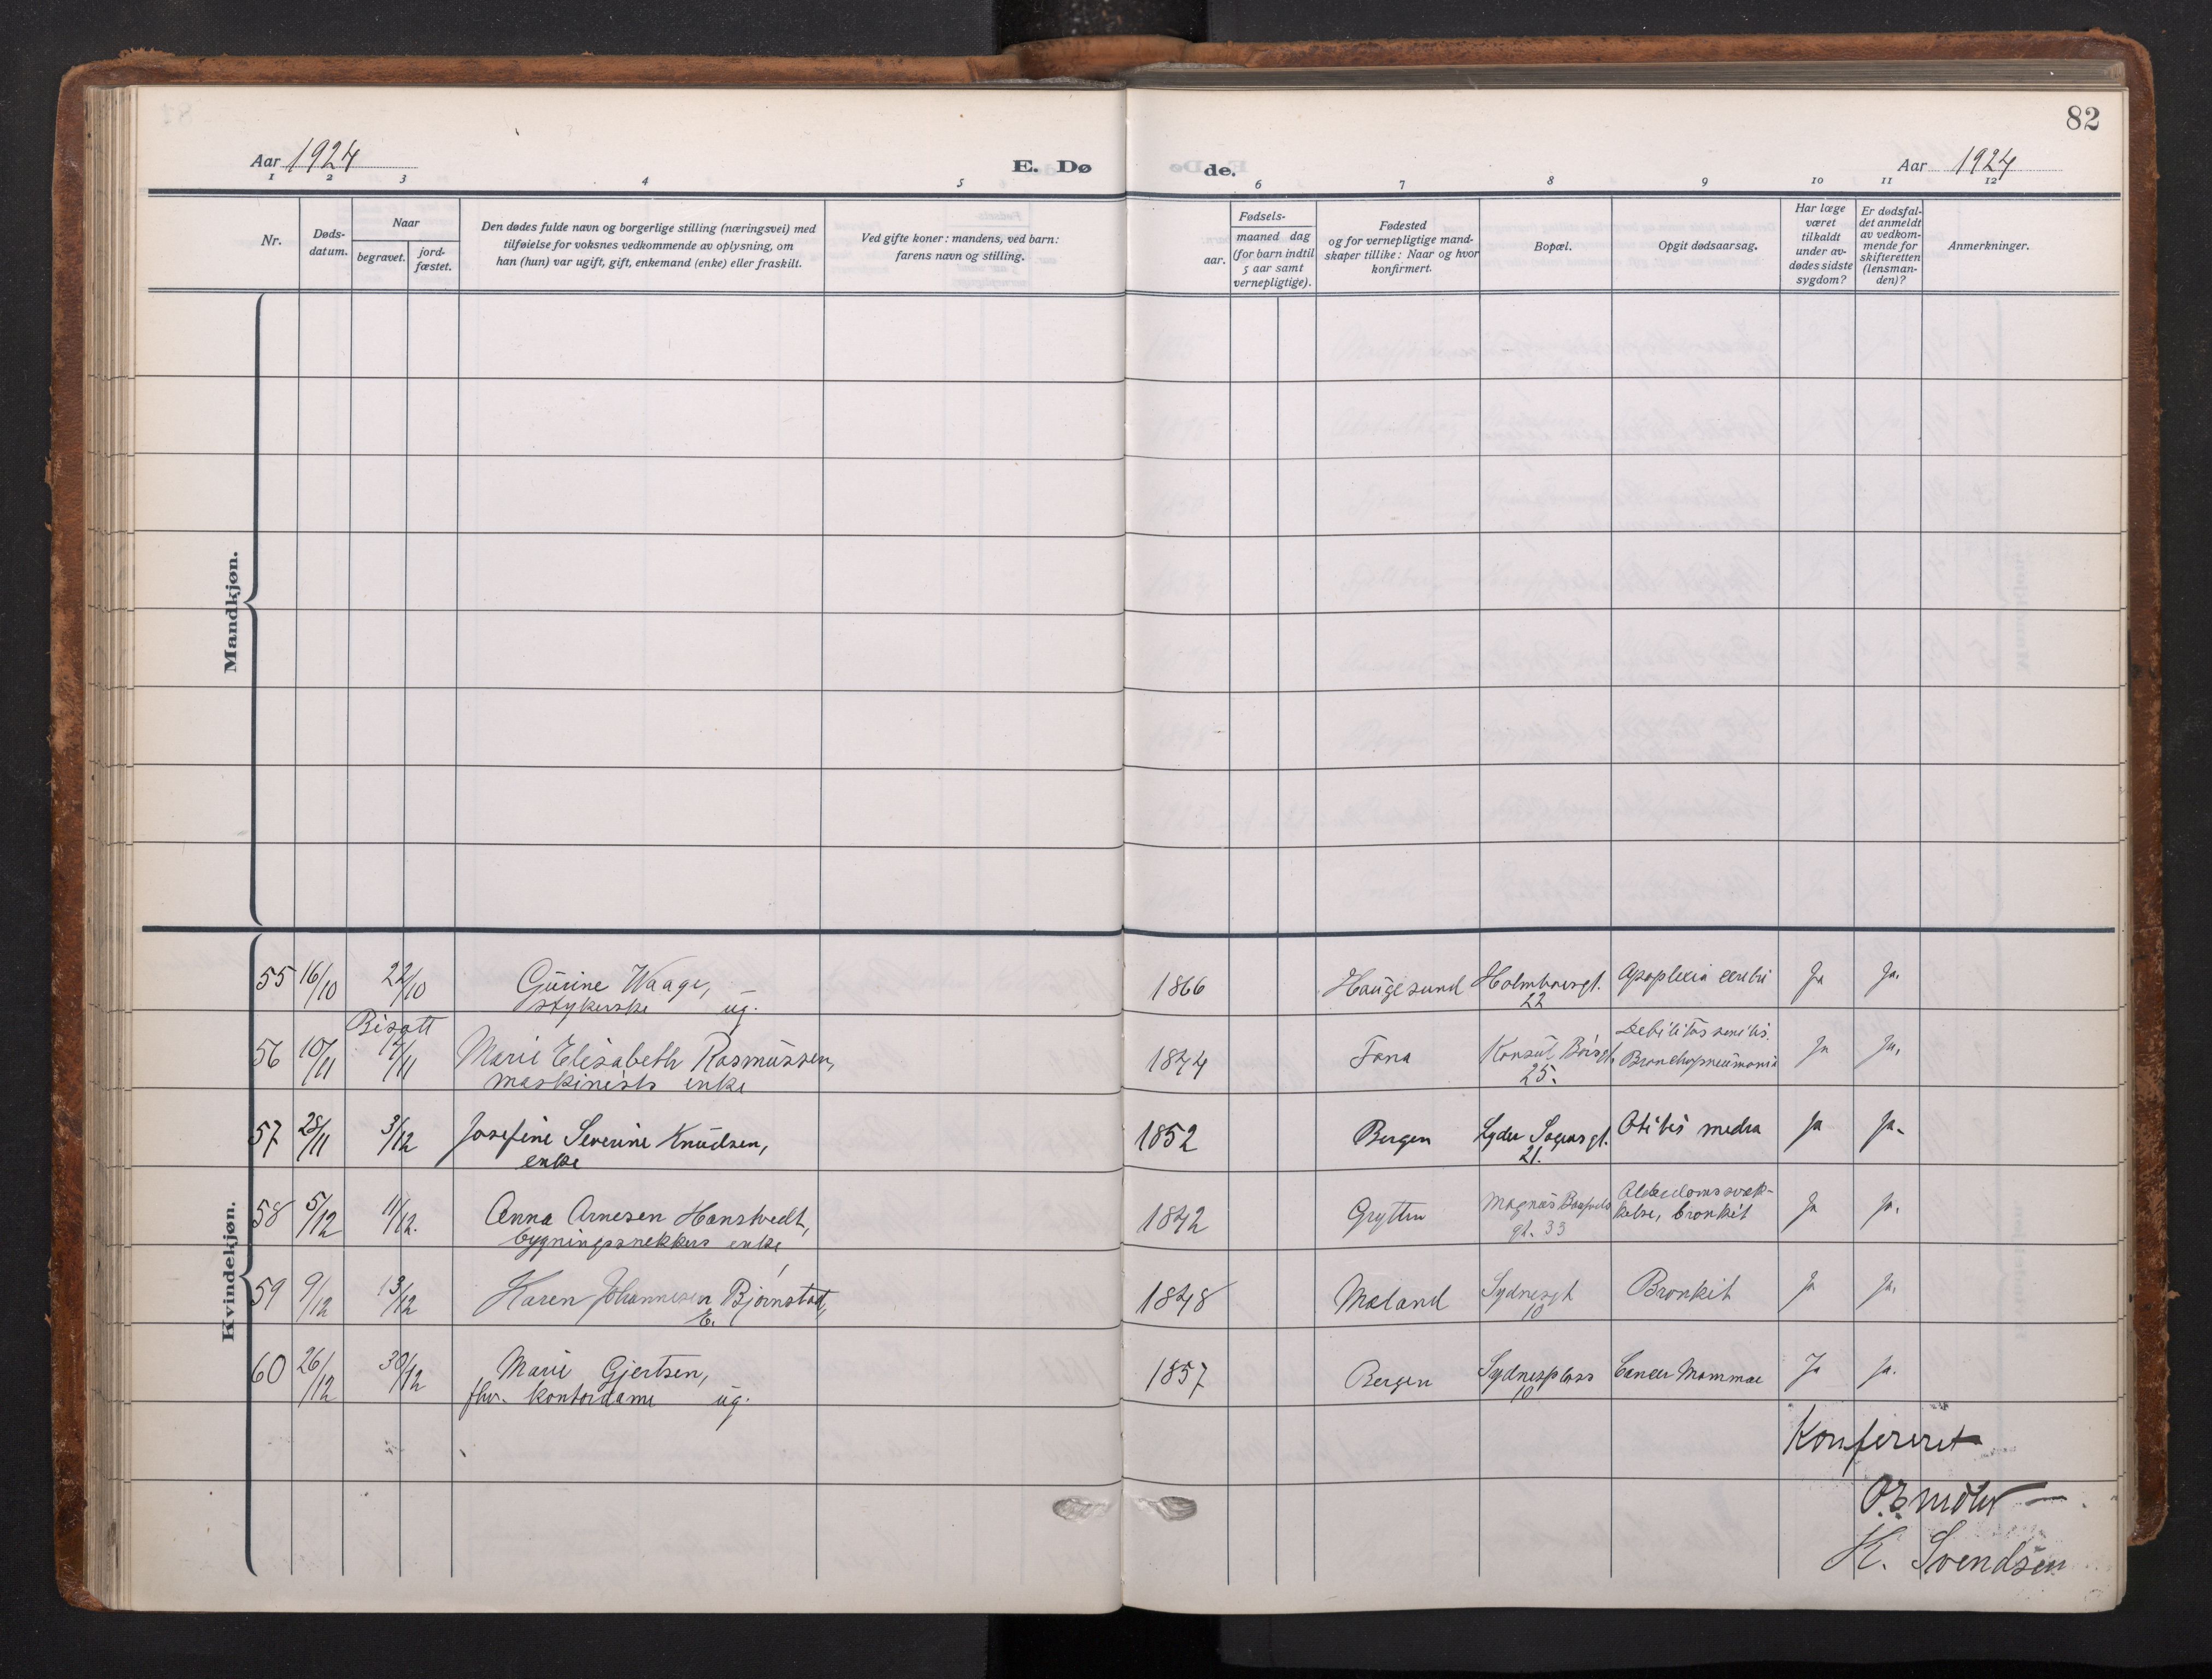 82
Aar 1924
E. Dø
de.
Aar 1924
1 2 3 4 5 6 7 8 9 10 11 12
Nr.
Døds-
datum.
Naar
begravet.
jord-
fæstet.
Den dødes fulde navn og borgerlige stilling (næringsvei) med
tilføielse for voksnes vedkommende av oplysning, om
han (hun) var ugift, gift, enkemand (enke) eller fraskilt.
Ved gifte koner: mandens, ved barn:
farens navn og stilling.
aar.
Fødsels-
maaned dag
(for barn indtil
5 aar samt
vernepligtige).
Fødested
og for vernepligtige mand-
skaper tillike: Naar og hvor
konfirmert.
Bopæl.
Opgit dødsaarsag.
Har læge
været
tilkaldt
under av-
dødes sidste
sygdom?
Er dødsfal-
det anmeldt
av vedkom-
mende for
skifteretten
(lensman-
den)?
Anmerkninger.
Mandkjøn.
Kvindekjøn.
55 16/10 22/10 Gurine Waage, 1866 Haugesund Holmboesgt. Apoplexia cerebri Ja Ja.
strykerske ug. 22
Bisatt Debilitas senilis.
56 10/11 17/11 Marie Elisabeth Rasmussen, 1844 Fana Konsul Børsgt. Bronchopneumonia Ja Ja.
maskinists enke 25.
57 28/11 3/12 Josefine Severine Knudsen, 1852 Bergen Lyder Sagensgt. Otitis media Ja Ja.
enke 21.
58 5/12 11/12. Anna Arnesen Hanstvedt, 1842 Grytten Magnus Barfods Alderdomssvæk- Ja Ja.
bygningssnekkers enke gt. 33 kelse, bronkit
59 9/12 13/12 Karen Johannesen Bjørnstad, 1848 Mæland Sydnesgt Bronkit Ja Ja.
E. 10
60 26/12 30/12 Marie Gjertsen, 1857 Bergen Sydnesplass Cancer Mammae Ja Ja.
fhv. kontordame ug. 10
Konfereret
K. Svendsen